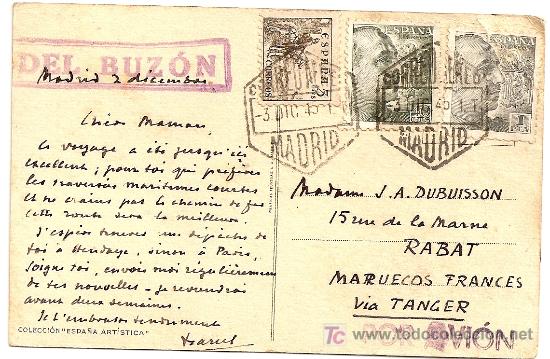 DEL BUZÓN
Madrid 2 décembre
Maman,
Ce voyage a été jusqu'ici
excellent ; pour toi qui préfères
les traversées maritimes courtes
et ne crains pas le chemin de fer
cette route sera la meilleure.
J'espère trouver une dépêche de
toi à Hendaye, sinon à Paris.
Soigne toi, envoie moi régulièrement
de tes nouvelles - je reviendrai
avant deux semaines.
Je t'embrasse tendrement
COLECCIÓN "ESPAÑA ARTÍSTICA"
ESPAÑA
5 cts
CORREOS
ESPAÑA
ESPAÑA
1 PTA
CORREO AEREO
-3 DIC 45
MADRID
CORREO AEREO
-3 DIC 45
MADRID
Madame J. A. DUBUISSON
15 rue de la Marne
RABAT
MARUECOS FRANCES
Via TANGER
POR AVIÓN
TC todocoleccion.net